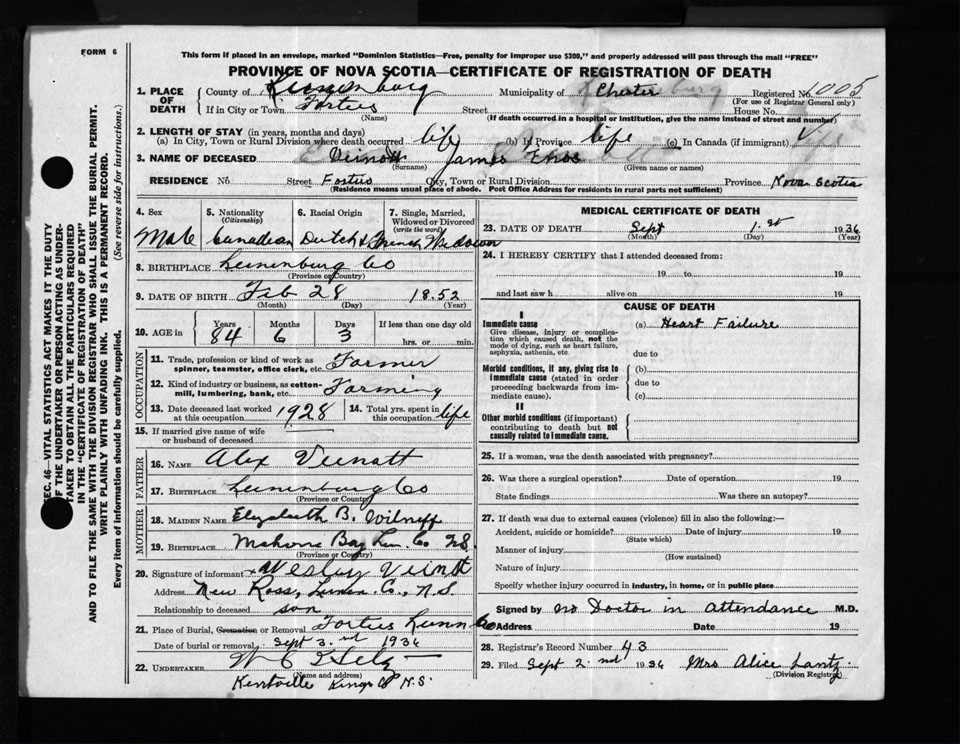 FORM 6
This form if placed in an envelope, marked "Dominion Statistics—Free, penalty for improper use $300," and properly addressed will pass through the mail "FREE"
PROVINCE OF NOVA SCOTIA—CERTIFICATE OF REGISTRATION OF DEATH
1. PLACE OF DEATH County of Lunenburg Municipality of Chester Registered No. 1005
(For use of Registrar General only)
If in City or Town Forties Street House No.
(Name) (If death occurred in a hospital or institution, give the name instead of street and number)
2. LENGTH OF STAY (in years, months and days)
(a) In City, Town or Rural Division where death occurred life (b) In Province life (c) In Canada (if immigrant)
3. NAME OF DECEASED Veinott James Enos
(Surname) (Given name or names)
RESIDENCE No Street Forties City, Town or Rural Division Province Nova Scotia
(Residence means usual place of abode. Post Office Address for residents in rural parts not sufficient)
4. Sex 5. Nationality (Citizenship) 6. Racial Origin 7. Single, Married, Widowed or Divorced (write the word)
Male Canadian Dutch & French Widower
8. BIRTHPLACE Lunenburg Co
(Province or Country)
9. DATE OF BIRTH Feb 28 1852
(Month) (Day) (Year)
10. AGE in Years Months Days If less than one day old
84 6 3 hrs. or min.
OCCUPATION
11. Trade, profession or kind of work as spinner, teamster, office clerk, etc. Farmer
12. Kind of industry or business, as cotton-mill, lumbering, bank, etc. Farming
13. Date deceased last worked at this occupation 1928 14. Total yrs. spent in this occupation life
15. If married give name of wife or husband of deceased
FATHER
16. NAME Alex Veinott
17. BIRTHPLACE Lunenburg Co
(Province or Country)
MOTHER
18. MAIDEN NAME Elizabeth B.
19. BIRTHPLACE Mahone Bay Lun. Co N.S.
(Province or Country)
20. Signature of informant x Wesley Veinot
Address New Ross, Lunen. Co., N.S.
Relationship to deceased son
21. Place of Burial, Cremation or Removal Forties Lunn Co
Date of burial or removal Sept 3rd 1936
22. UNDERTAKER
(Name and address)
Kentville Kings Co N.S.
MEDICAL CERTIFICATE OF DEATH
23. DATE OF DEATH Sept 1st 1936
(Month) (Day) (Year)
24. I HEREBY CERTIFY that I attended deceased from:
19 to 19
and last saw h alive on 19
CAUSE OF DEATH
I
Immediate cause (a) Heart Failure
Give disease, injury or complication which caused death, not the mode of dying, such as heart failure, asphyxia, asthenia, etc. due to
Morbid conditions, if any, giving rise to immediate cause (stated in order proceeding backwards from immediate cause). (b)
due to
(c)
II
Other morbid conditions (if important) contributing to death but not causally related to immediate cause.
25. If a woman, was the death associated with pregnancy?
26. Was there a surgical operation? Date of operation 19
State findings Was there an autopsy?
27. If death was due to external causes (violence) fill in also the following:—
Accident, suicide or homicide? Date of injury 19
(State which)
Manner of injury
(How sustained)
Nature of injury
Specify whether injury occurred in industry, in home, or in public place
Signed by no Doctor in attendance M.D.
Address Date 19
28. Registrar's Record Number 43
29. Filed Sept 2nd 1936 Mrs Alice Lantz
(Division Registrar)
SEC. 46—VITAL STATISTICS ACT MAKES IT THE DUTY
OF THE UNDERTAKER OR PERSON ACTING AS UNDER-
TAKER TO OBTAIN ALL THE PARTICULARS REQUIRED
IN THE "CERTIFICATE OF REGISTRATION OF DEATH"
AND TO FILE THE SAME WITH THE DIVISION REGISTRAR WHO SHALL ISSUE THE BURIAL PERMIT.
WRITE PLAINLY WITH UNFADING INK. THIS IS A PERMANENT RECORD.
Every item of information should be carefully supplied. (See reverse side for instructions.)